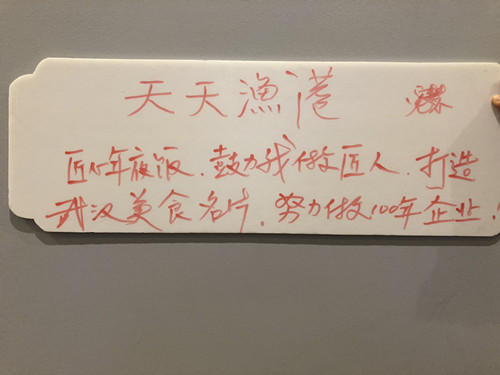 天天漁港
匠心年夜饭.鼓力我做匠人.打造
武汉美食名片.努力做100年企业!